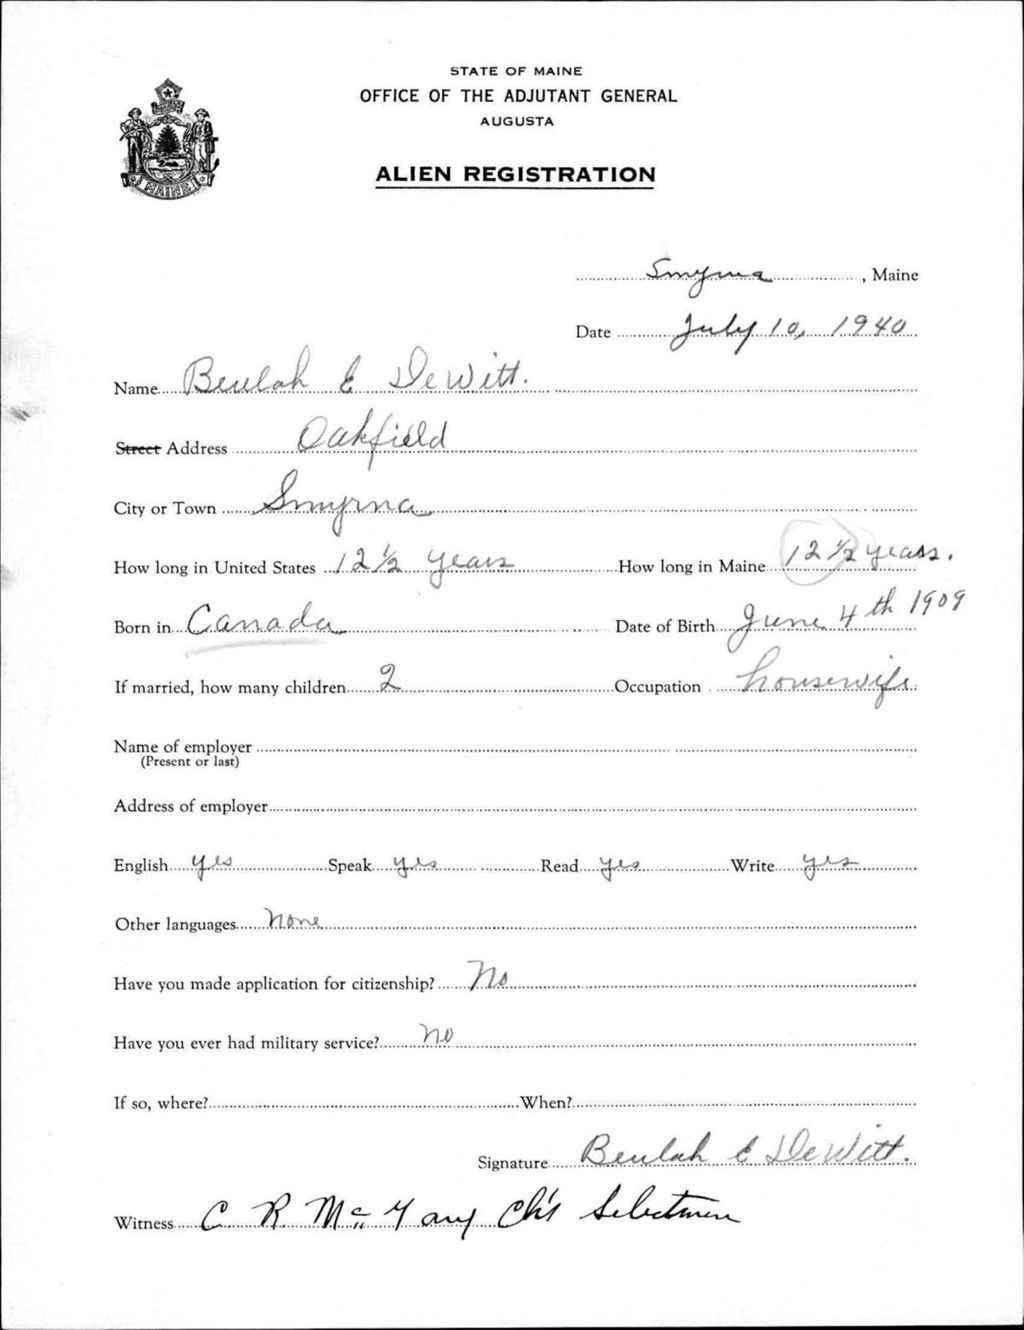 STATE OF MAINE
OFFICE OF THE ADJUTANT GENERAL
AUGUSTA
ALIEN REGISTRATION
MAINE
Smyrna, Maine
Date July 10, 1940
Name Beulah E DeWitt.
Street Address Oakfield
City or Town Smyrna
How long in United States 12 1/2 years How long in Maine 12 1/2 years.
Born in Canada Date of Birth June 4th 1909
If married, how many children 2 Occupation housewife
Name of employer
(Present or last)
Address of employer
English yes Speak yes Read yes Write yes
Other languages none
Have you made application for citizenship? No
Have you ever had military service? no
If so, where? When?
Signature Beulah E DeWitt.
Witness C R Selectmen